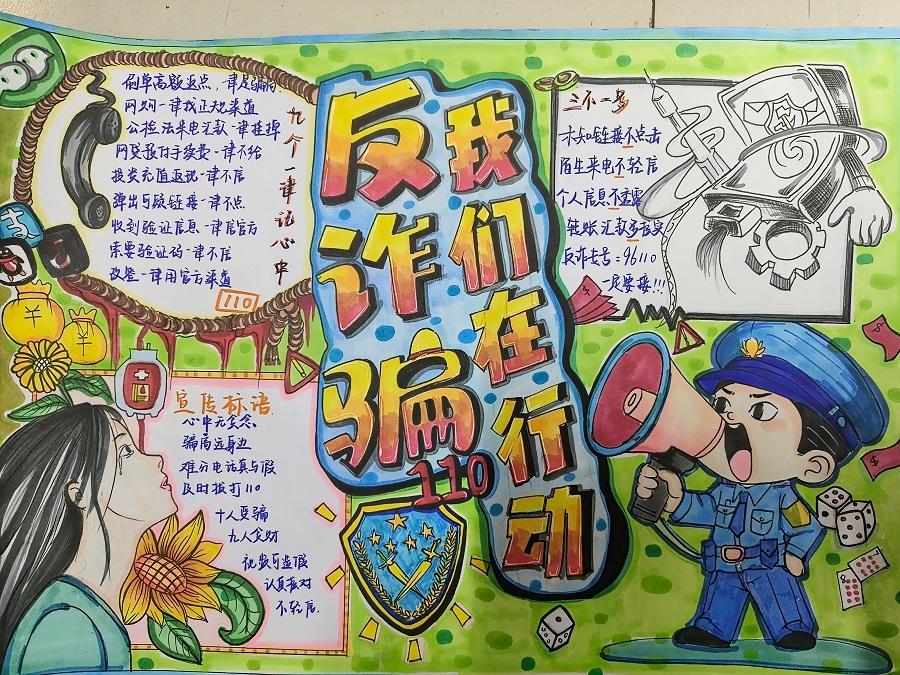 反诈骗
我们在行动
110
九个一律记心中
刷单高额返点,一律是骗局
网购一律找正规渠道
公检法来电汇款一律挂掉
网贷预付手续费一律不给
投资充值返现一律不信
弹出可疑链接一律不点
收到验证信息一律信官方
索要验证码一律不信
改签一律用官方渠道
110
三不一多
未知链接不点击
陌生来电不轻信
个人信息不透露
转账汇款多核实
反诈专号:96110
一定要接!!!
宣传标语
心中无贪念
骗局远身边
难分电话真与假
及时拨打110
十人受骗
九人贪财
认真核对
不轻信.